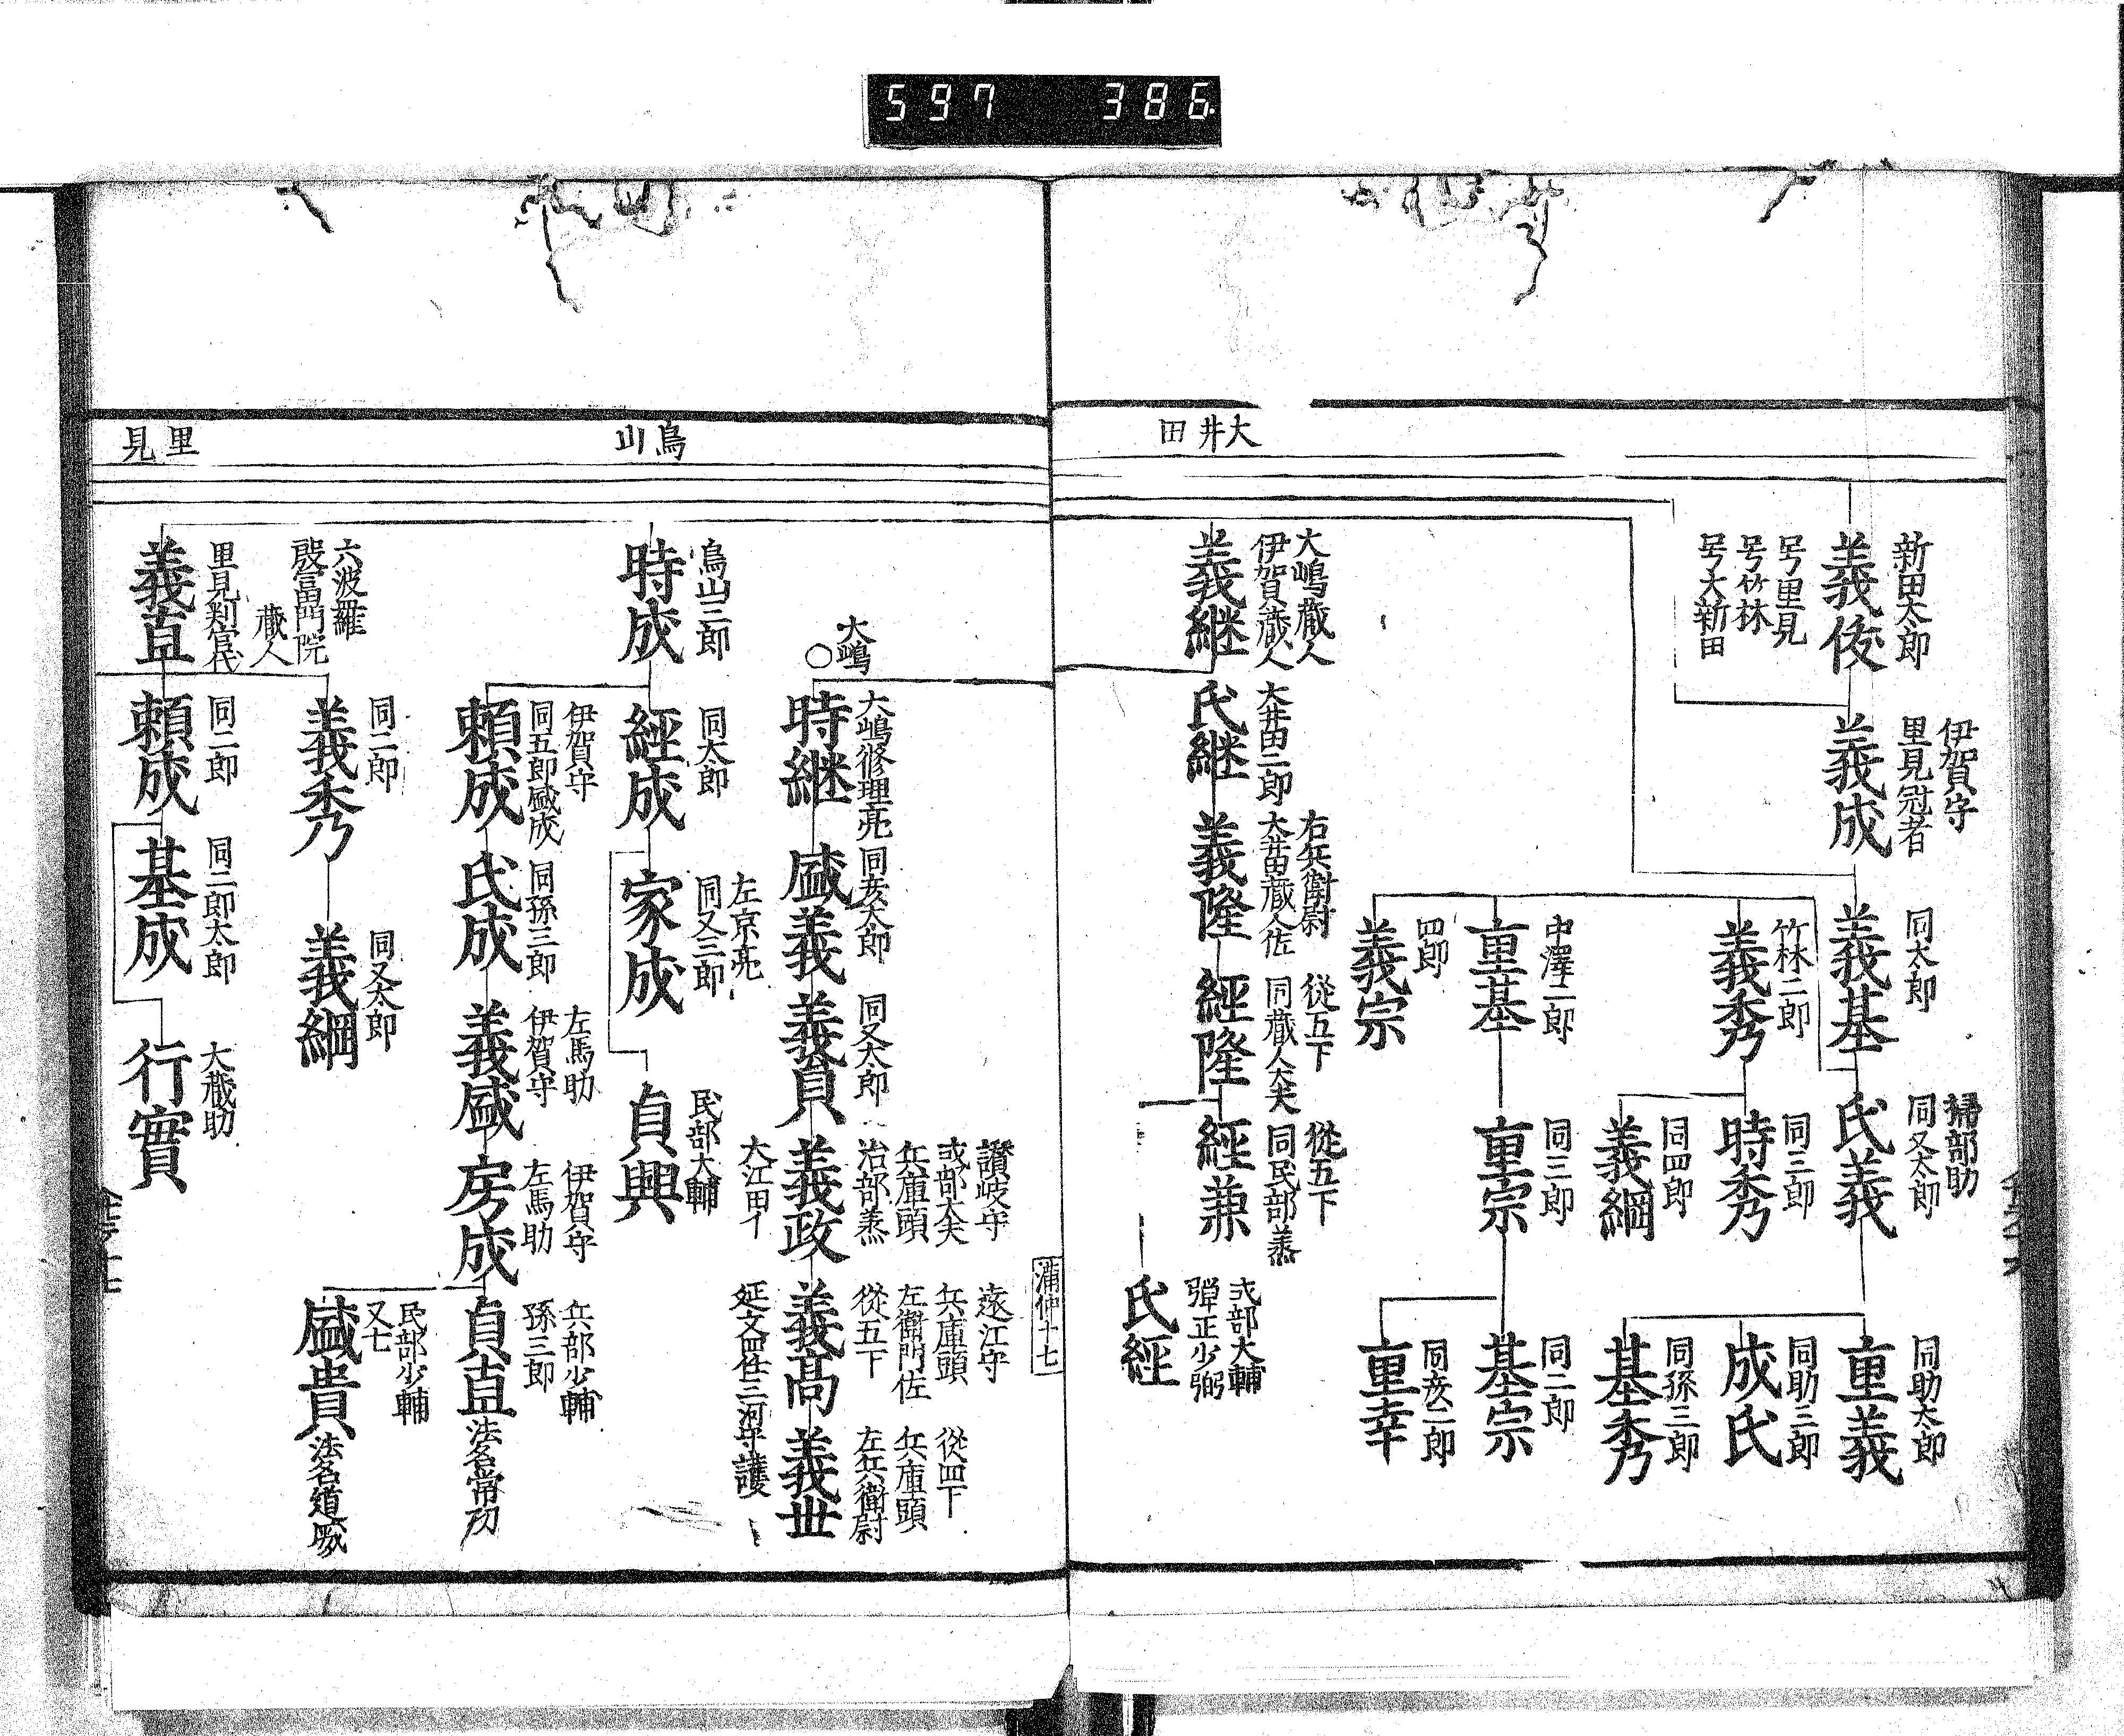 597 386
大井田
新田太郎
義俊
号里見
号竹林
号大新田
伊賀守
里見冠者
義成
同太郎
義基
掃部助
同又太郎
氏義
同助太郎
重義
同助三郎
成氏
同孫三郎
基秀
竹林二郎
義秀
同三郎
時秀
同四郎
義綱
中澤二郎
重基
同三郎
重宗
同二郎
基宗
同彦二郎
重幸
四郎
義宗
大嶋蔵人
伊賀蔵人
義継
大井田二郎
氏継
右兵衛尉
大井田蔵人佐
義隆
従五下
同蔵人大夫
経隆
従五下
同民部丞
経兼
式部大輔
弾正少弼
氏経
蒲仲十七
鳥山
里見
大嶋
大嶋修理亮
時継
同彦太郎
盛義
同又太郎
義貞
讃岐守
式部大夫
兵庫頭
治部丞
義政
大江田イ
遠江守
兵庫頭
左衛門佐
従五下
義高
延文四任三河守護
従四下
兵庫頭
左兵衛尉
義世
鳥山三郎
時成
同太郎
経成
左京亮
同又三郎
家成
民部大輔
貞興
伊賀守
同五郎盛成
頼成
同孫三郎
氏成
左馬助
伊賀守
義盛
伊賀守
左馬助
房成
兵部少輔
孫三郎
貞直
民部少輔
又七
盛貴
六波羅
殷冨門院
蔵人
里見判官代
義直
同二郎
義秀
同又太郎
義綱
同二郎
頼成
同二郎太郎
基成
大蔵助
行實